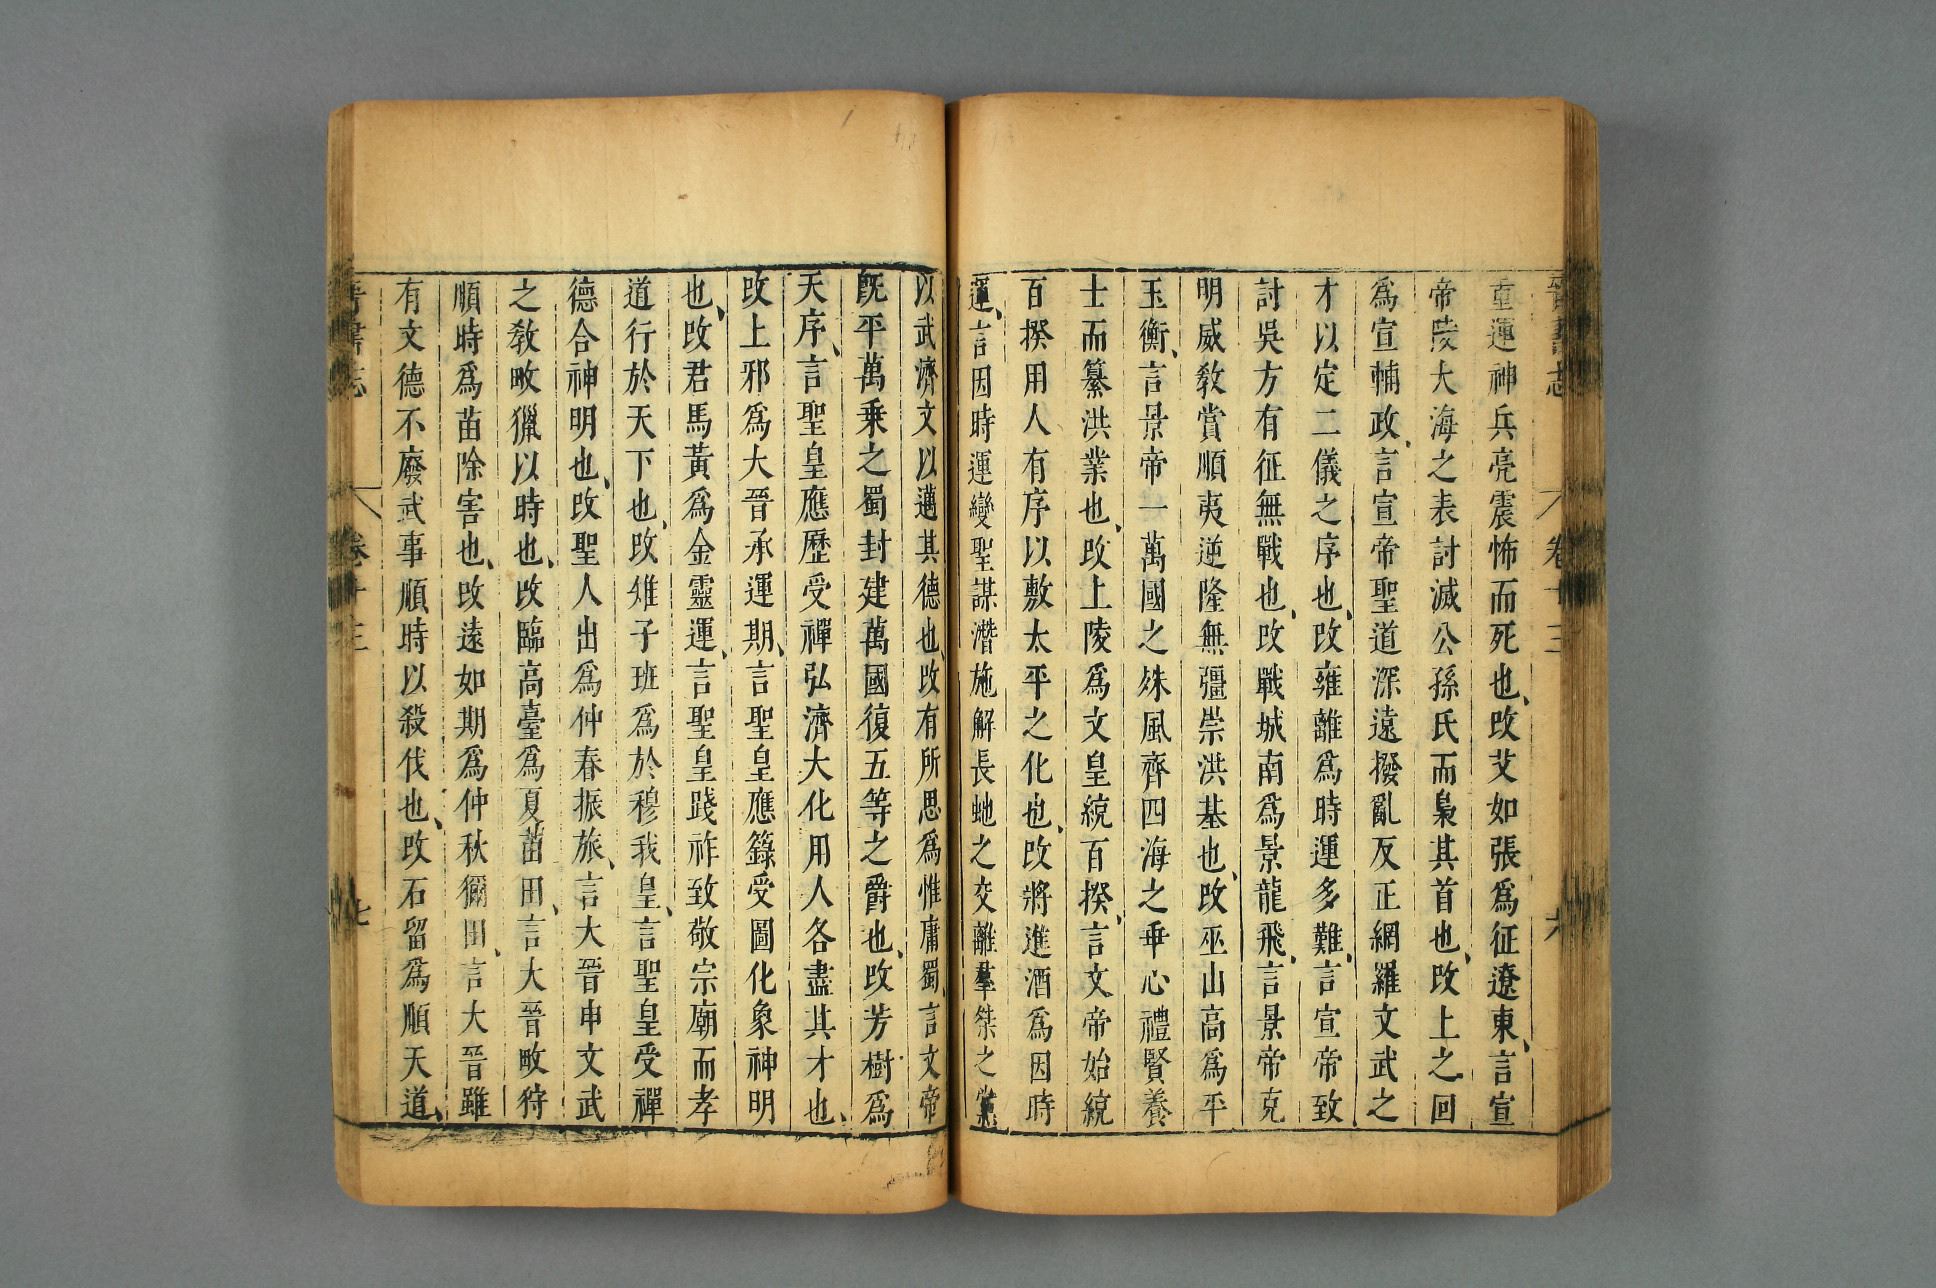 晉書志 卷十三 六
重運神兵亮震怖而死也攺艾如張爲征遼東言宣
帝陵大海之表討滅公孫氏而梟其首也攺上之回
爲宣輔政言宣帝聖道深遠撥亂反正網羅文武之
才以定二儀之序也攺雍離爲時運多難言宣帝致
討吳方有征無戰也攺戰城南爲景龍飛言景帝克
明威敎賞順夷逆隆無疆崇洪基也攺巫山高爲平
玉衡言景帝一萬國之殊風齊四海之乖心禮賢養
士而纂洪業也攺上陵爲文皇統百揆言文帝始統
百揆用人有序以敷太平之化也攺將進酒爲因時
運言因時運變聖謀潛施解長虵之交離羣桀之黨
以武濟文以邁其德也攺有所思爲惟庸蜀言文帝
旣平萬乗之蜀封建萬國復五等之爵也攺芳樹爲
天序言聖皇應歷受禪弘濟大化用人各盡其才也
攺上邪爲大晉承運期言聖皇應籙受圖化象神明
也攺君馬黃爲金靈運言聖皇踐祚致敬宗廟而孝
道行於天下也攺雉子班爲於穆我皇言聖皇受禪
德合神明也攺聖人出爲仲春振旅言大晉申文武
之敎畋獵以時也攺臨高臺爲夏苗田言大晉畋狩
順時爲苗除害也攺遠如期爲仲秋獮田言大晉雖
有文德不廢武事順時以殺伐也攺石留爲順天道
晉書志 卷十三 七